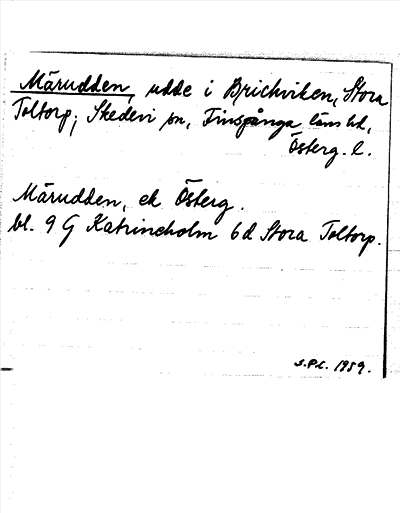 Märudden, udde i Brickviken, Stora
Toltorp; Skedevi sn, Finspånga läns hd,
Österg. l.
Märudden, ek Österg.
bl. 9 G Katrineholm 6 d Stora Toltorp.
S.P.L. 1959.